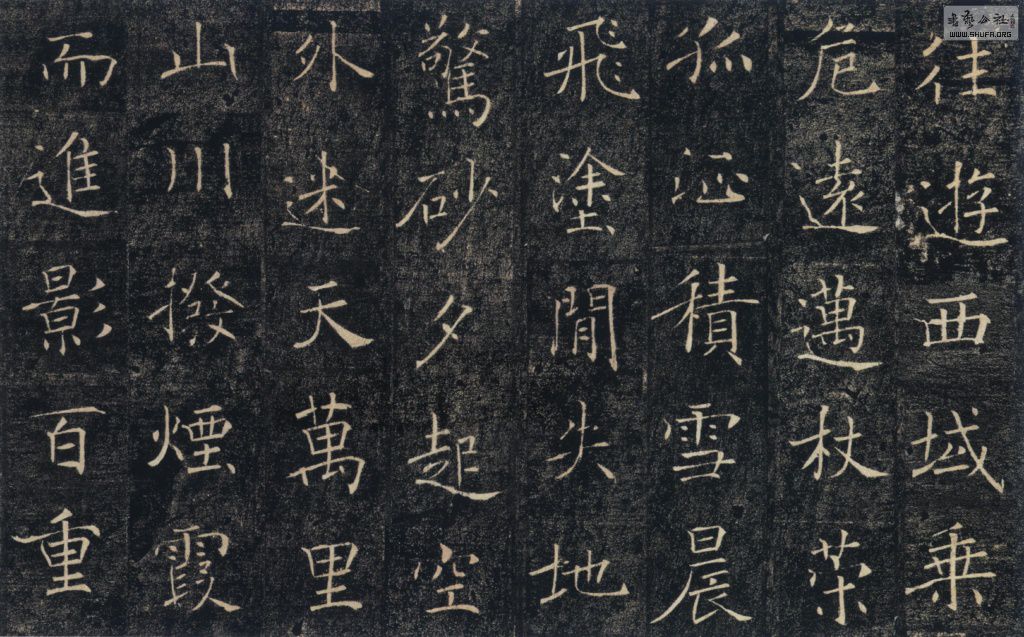 往遊西域乗
危遠邁杖策
孤征積雪晨
飛塗閒失地
驚砂夕起空
外迷天萬里
山川撥煙霞
而進影百重
書藝公社
WWW.SHUFA.ORG